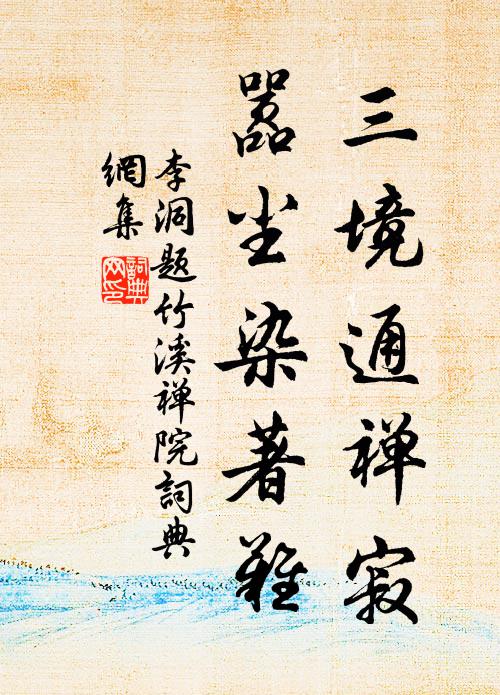 三境通禅寂
嚣尘染著难
李洞题竹溪禅院詞典
網集
詞典
网印